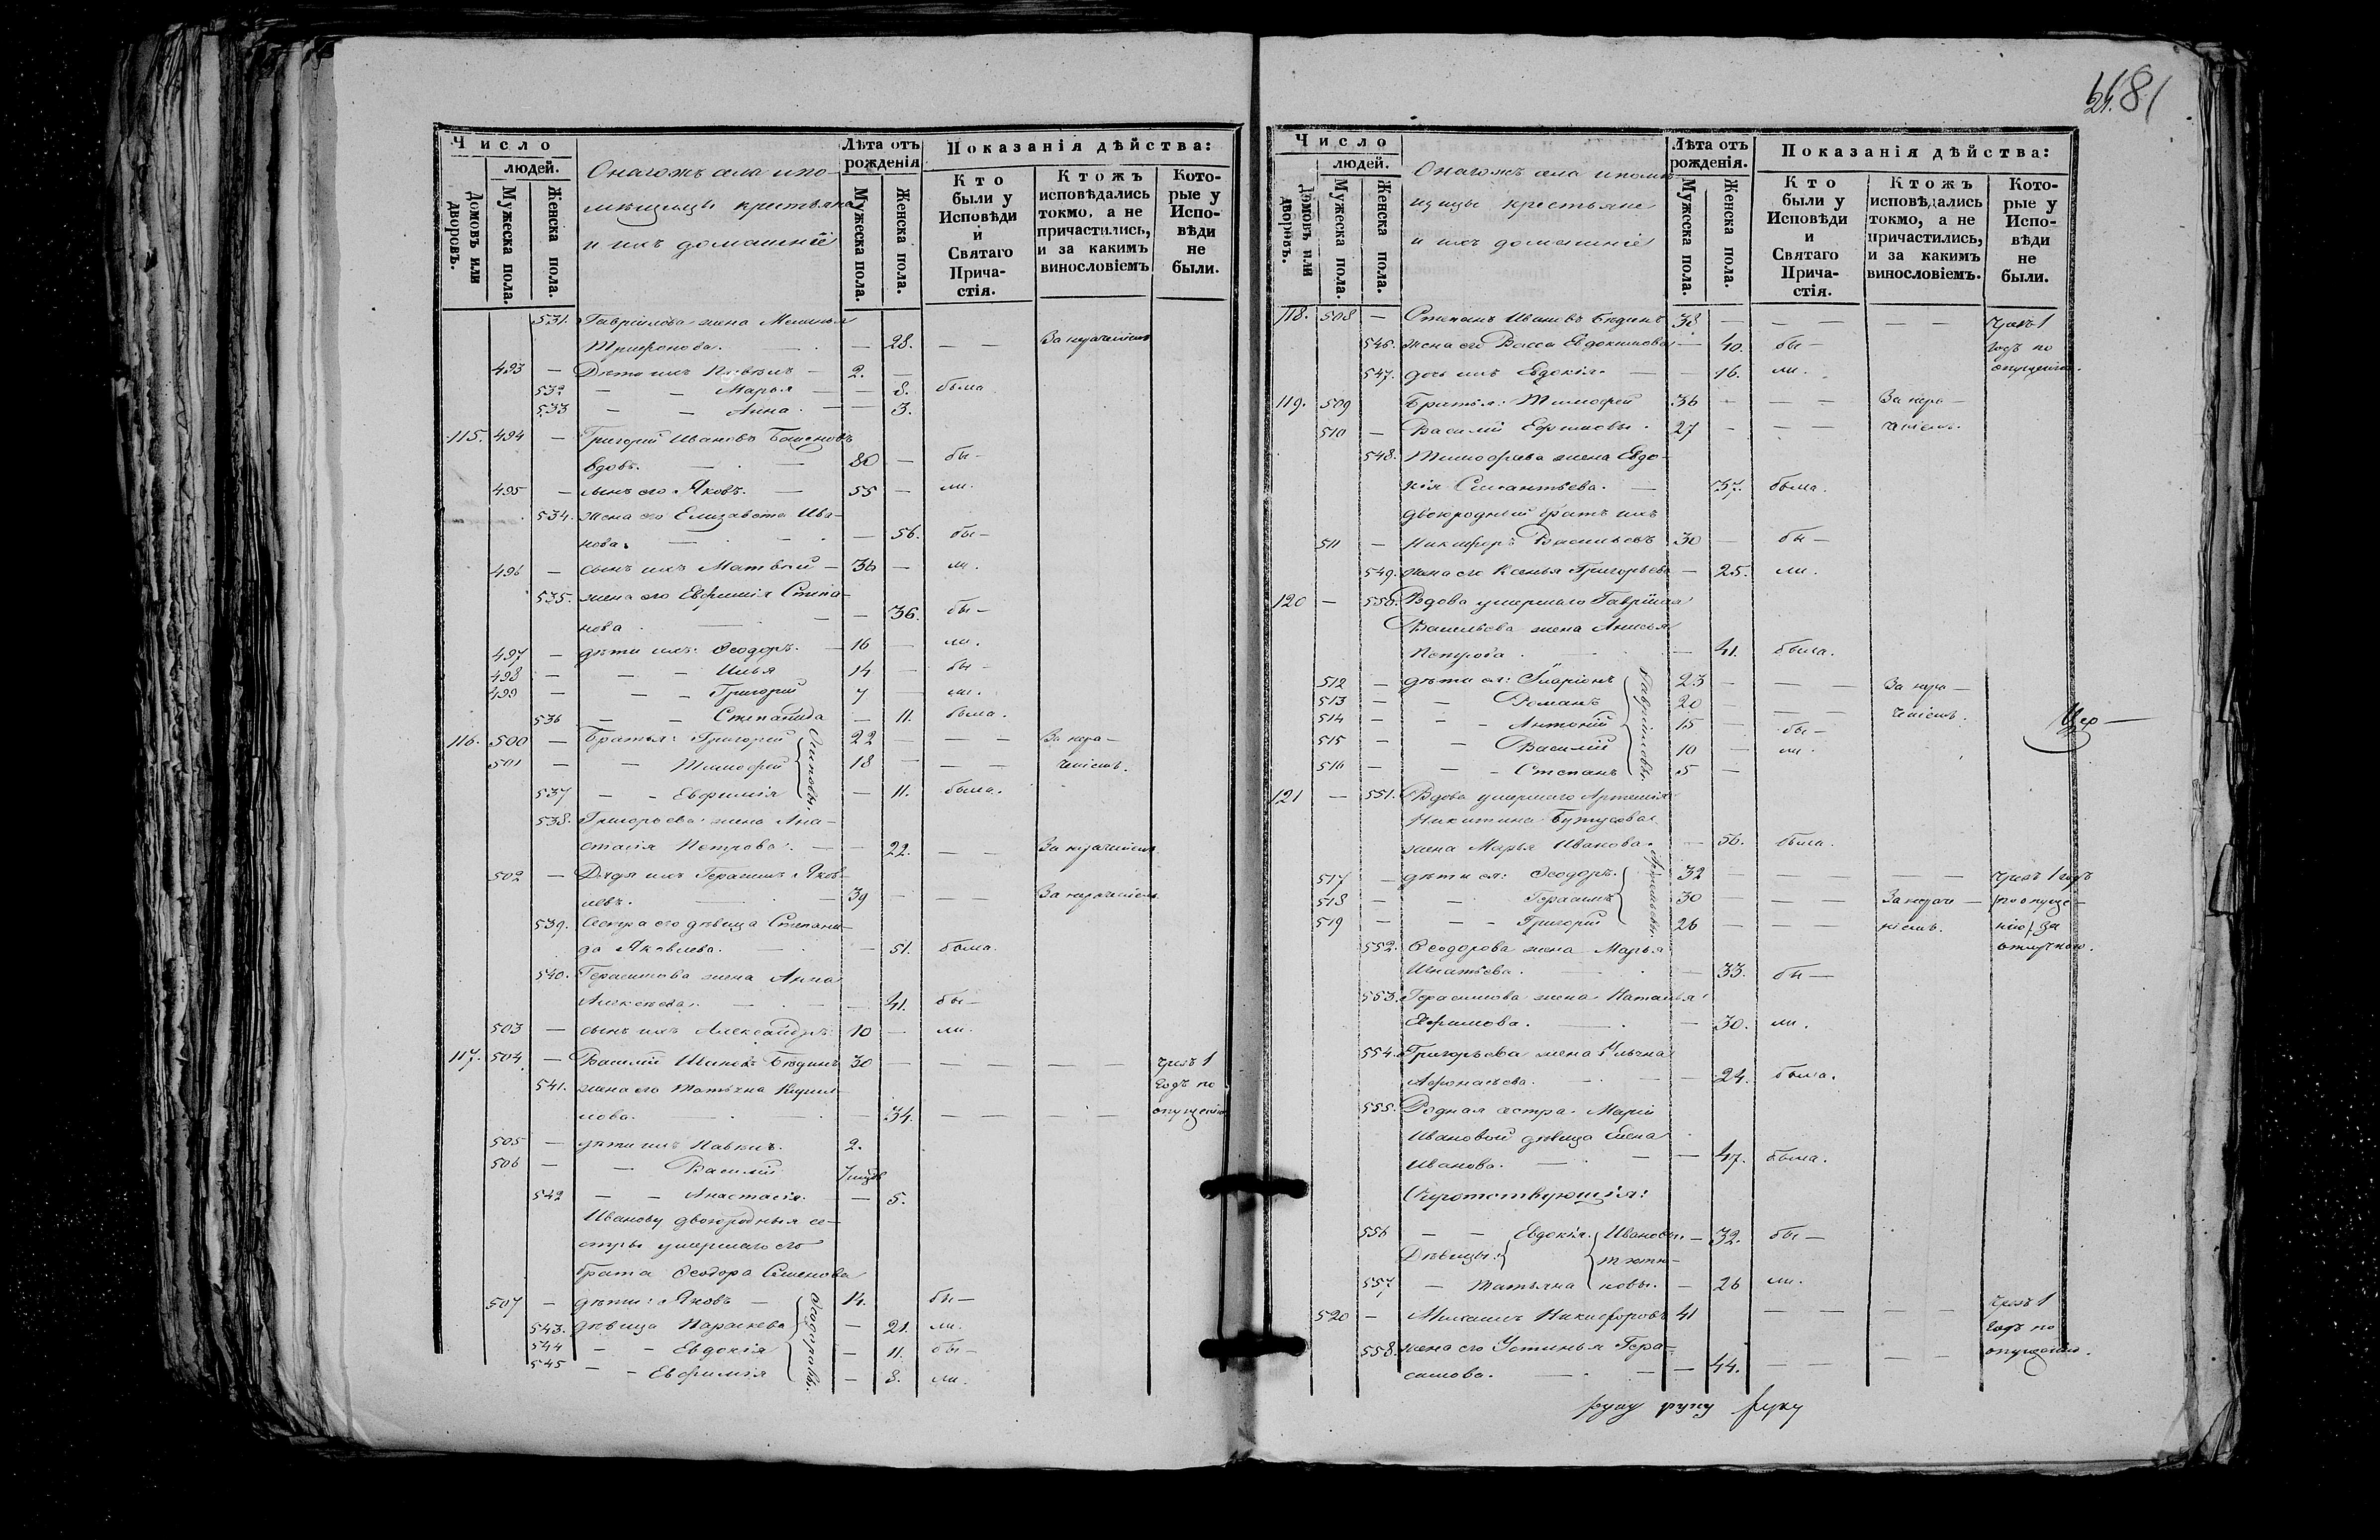 Число
людей.
Домовъ или дворовъ.
Мужеска пола.
Женска пола.
Онагожъ села и по-
мѣщицы крестьяне
и ихъ домашніе
Лѣта отъ рожденія
Мужеска пола.
Женска пола.
Показанія дѣйства:
Кто были у Исповѣди и Святаго Прича-стія.
Ктожъ исповѣдались токмо, а не причастились, и за какимъ винословіемъ
Кото-рые у Испо-вѣди не были.
531. Гавріилова жена Меланья
Трифонова. — — 28. — — За нераченіемъ
493 — Дѣти ихъ Павелъ — 2. —
532 — — Марья — — 8. была
533 — — Анна. — — 3.
115. 494 — Григорій Ивановъ
вдовъ. — 80 — бы—
495 — сынъ его Яковъ. — 55 — ли.
534. жена его Елизавета Ива-
нова. — — 56. бы—
496 — сынъ ихъ Матвѣй — 36 — ли.
535. жена его Евфимія Степа-
нова — — 36. бы—
497 — дѣти ихъ: Ѳеодоръ. — 16 — ли.
498 — — — Илья 14 — бы—
499 — — — Григорій 7 — ли.
536 — — Степанида — 11. была.
116. 500 — Братья: Григорій 22 — — — За нера—
501 — — Тимофей 18 — — — ченіемъ.
537 — — Евфимія — 11. была.
Осиповы.
538. Григорьева жена Ана-
стасія Петрова. — — 22. — — За нераченіемъ.
502 — Дядя ихъ Герасимъ Яков-
левъ. — 39 — — — За нераченіемъ
539. Сестра его дѣвица Степани-
да Яковлева. — — 51. была.
540. Герасимова жена Анна
Алексѣева. — — 41. бы—
503 — сынъ ихъ Александръ. 10 — ли.
117. 504 — Василій Ивановъ Бѣдинъ 30 — — — — — чрезъ 1
541. жена его Татьяна Кирил- годъ по
лова. — — 34. — — — — опущенію
505 — дѣти ихъ Павелъ. 2.
506 — — Василій
542 — — Анастасія. — — 5.
Иванову двоюродныя се-
стры умершаго его
брата Ѳеодора Семенова
507 — дѣти: Яковъ — 14. бы—
543. дѣвица Параскева — 21. ли.
544 — — Евдокія — 11. бы—
545 — — Евфимія — 8. ли.
Ѳеодоровы.
81
Число
людей.
Домовъ или дворовъ.
Мужеска пола.
Женска пола.
Онагожъ села и помѣ-
щицы крестьяне
и ихъ домашніе
Лѣта отъ рожденія.
Мужеска пола.
Женска пола.
Показанія дѣйства:
Кто были у Исповѣди и Святаго Прича-стія.
Ктожъ исповѣдались токмо, а не причастились, и за какимъ винословіемъ.
Кото-рые у Испо-вѣди не были.
118. 508 — Степанъ Ивановъ Бѣдинъ 38 — — — — — чрезъ 1
546. жена его Васса Евдокимова — 40. бы— годъ по
547. дочь ихъ Евдокія. — — 16. ли. опущенію.
119. 509 Братья: Тимофей 36 — — — За нера—
510 — Василій Ефимовы. 27 — — — ченіемъ.
548. Тимофеева жена Евдо-
кія Силантьева. — 37. была.
двоюродный братъ ихъ
511 — Никифоръ Васильевъ 30 — бы—
549. жена его Ксенья Григорьева — 25. ли.
120 — 550. Вдова умершаго Гавріила
Васильева жена Анисья
Петрова. — — 41. была.
512 — дѣти ея: Иларіонъ 23 — — — За нера—
513 — — Романъ 20 — — — ченіемъ.
514 — — — Антоній 15 — бы—
515 — — Василій 10 — ли.
516 — — — Степанъ 5 —
Гавріиловы.
121 — 551. Вдова умершаго Артемія
Никитина Бутусова
жена Марья Иванова. — 56. была.
517 — дѣти ея: Ѳеодоръ. 32 — — — — — чрезъ 1 годъ
518 — — Герасимъ 30 — — — За нераче— по опуще—
519 — — — Григорій 26 — — — ніемъ. нію, за
Артемьевы. отлучкою.
552. Ѳеодорова жена Марья
Игнатьева. — — 33. бы—
553. Герасимова жена Наталья
Ефимова. — — 30. ли.
554. Григорьева жена Ульяна
Афонасьева. — — 24. была.
555. Родная сестра Маріи
Ивановой дѣвица Елена
Иванова. — — 47. была.
Сиротствующія:
556 — — Евдокія. Ивановы — 32. бы—
Дѣвицы:
557 — Татьяна — 26 ли.
520 — Никифоровъ 41 — — — — чрезъ 1
годъ по
558. жена его Устинья Гера- опущенію.
симова. — — 44. — — — —
руку руку руку